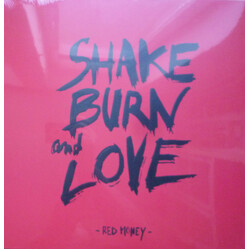 SHAKE
BURN
and LOVE
- RED MONEY -